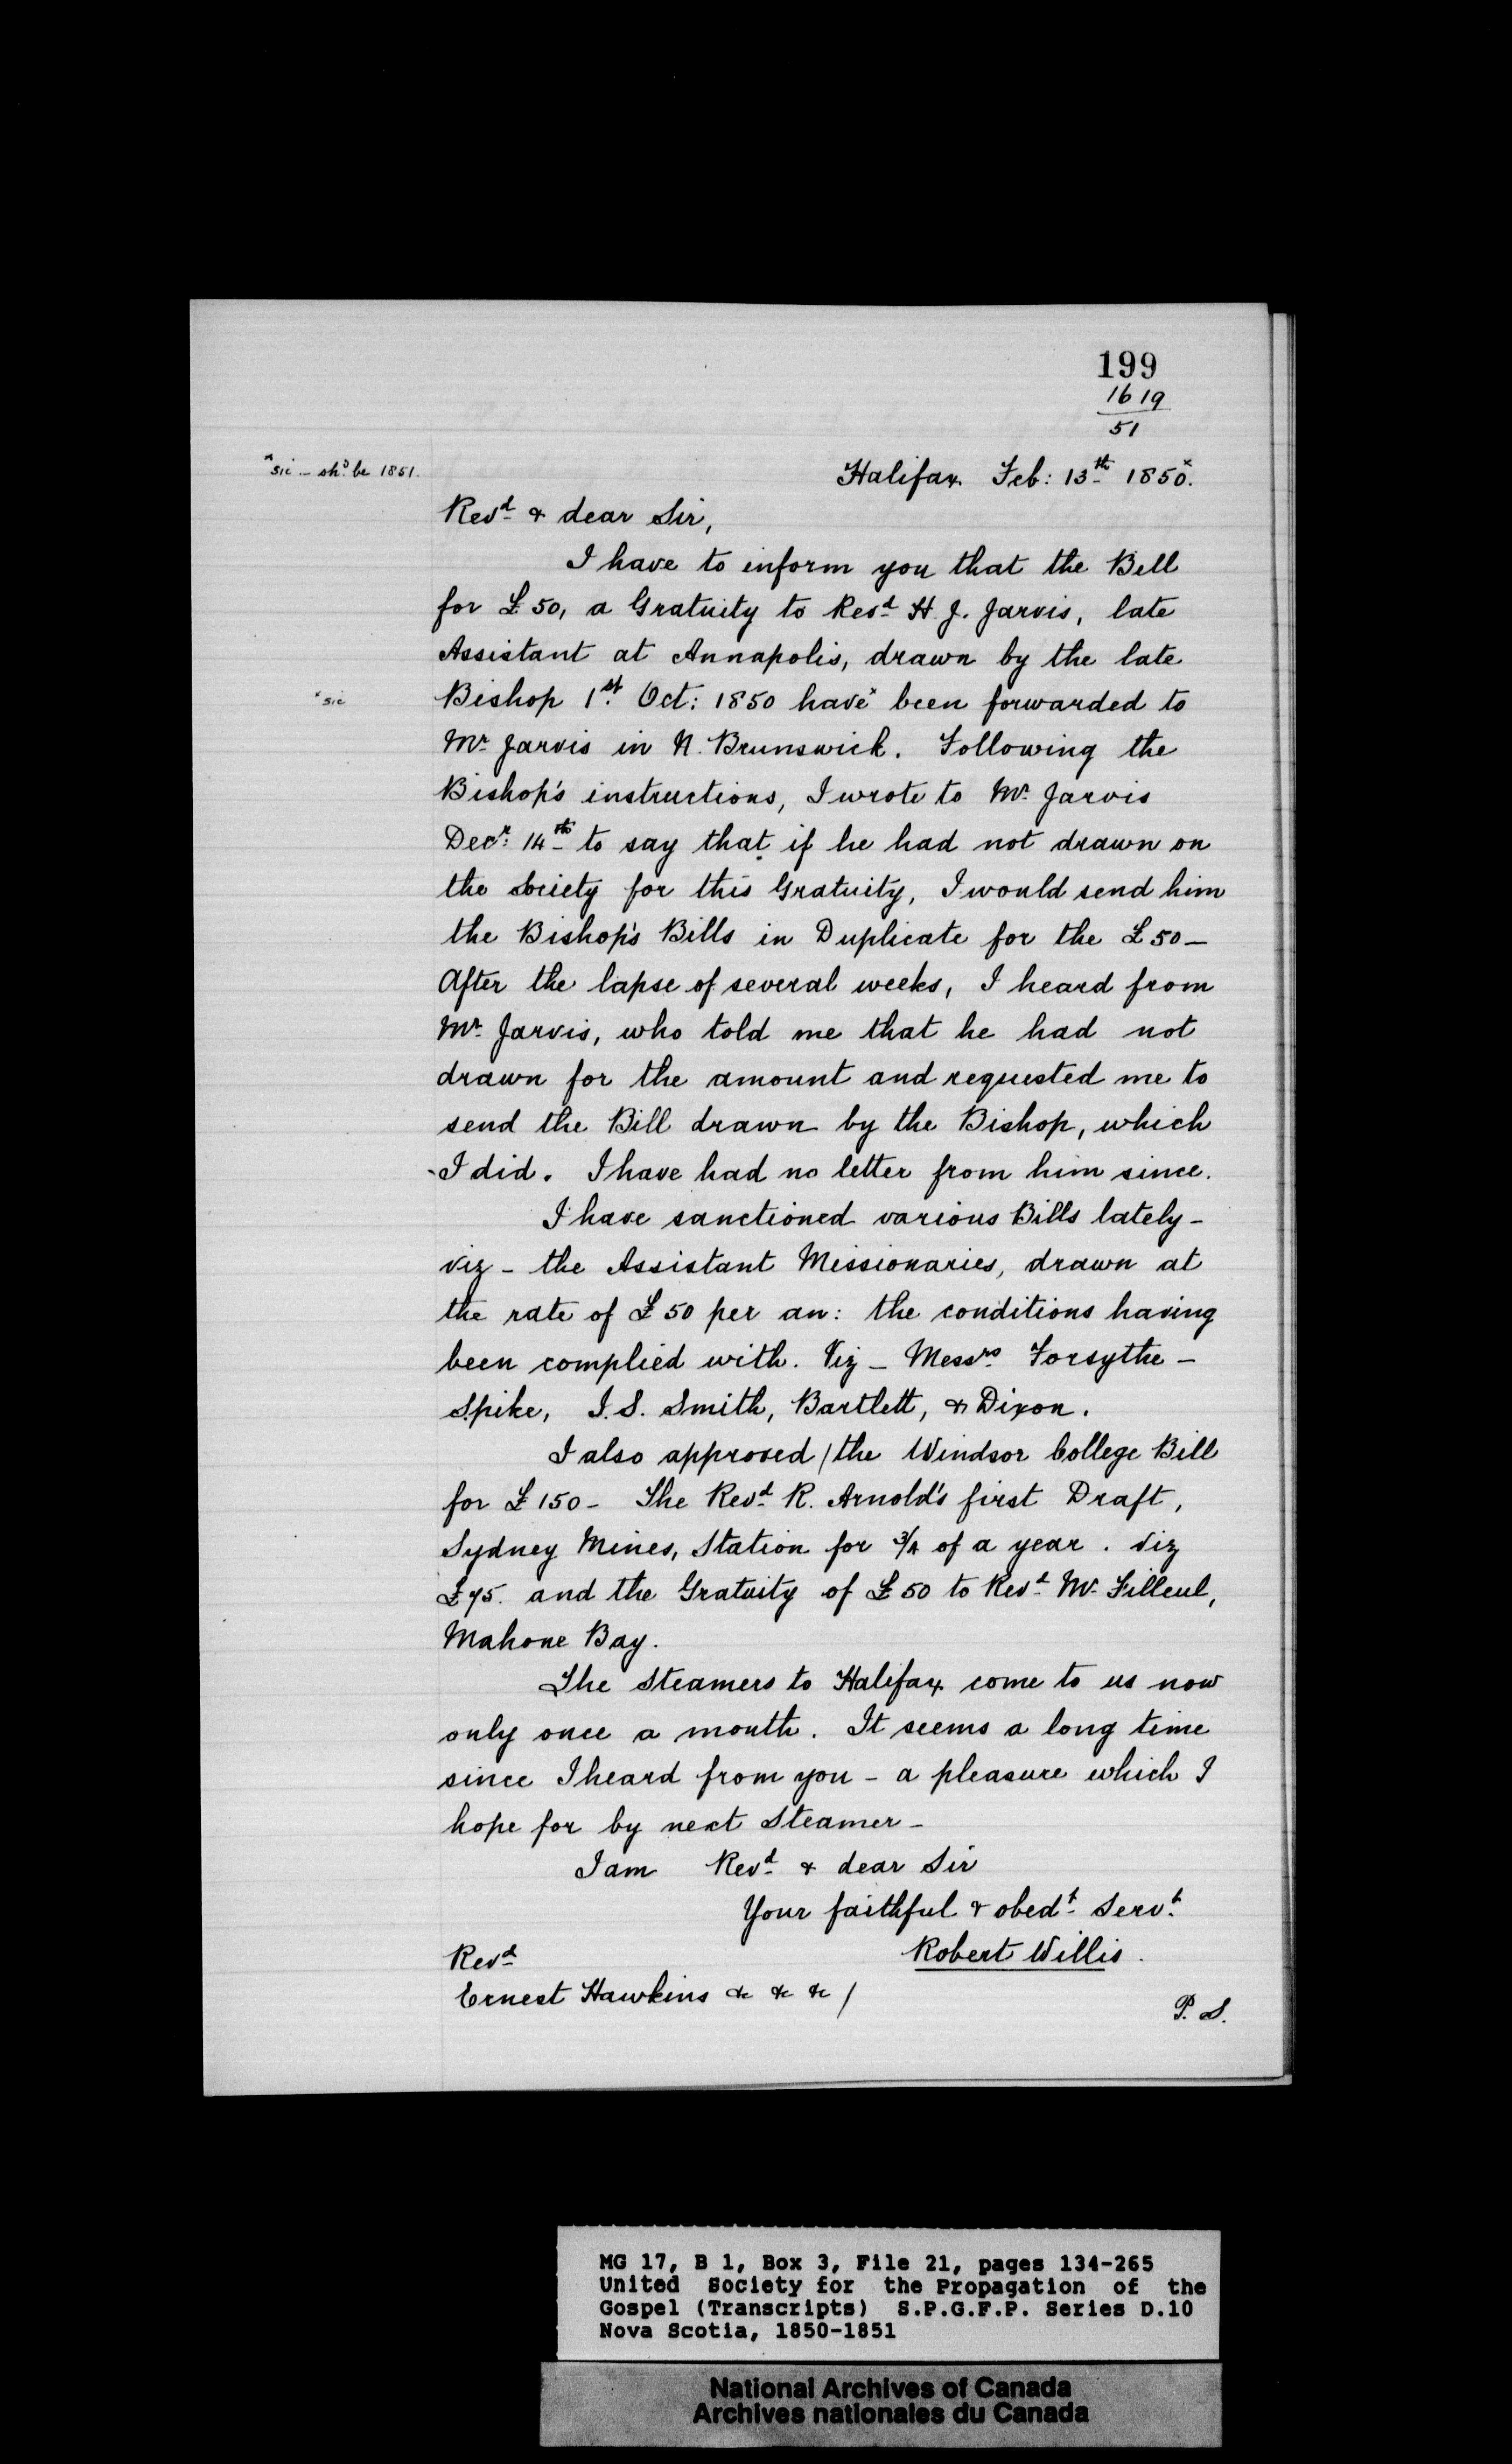 199
1619
51
*sic - sh.d be 1851.
Halifax Feb: 13th 1850.*
Revd & dear Sir,
I have to inform you that the Bill
for £50, a Gratuity to Revd H. J. Jarvis, late
Assistant at Annapolis, drawn by the late
*sic
Bishop 1st Oct: 1850 have* been forwarded to
Mr Jarvis in N. Brunswick. Following the
Bishop's instructions, I wrote to Mr Jarvis
Decr: 14th to say that if he had not drawn on
the Society for this Gratuity, I would send him
the Bishop's Bills in Duplicate for the £50 -
After the lapse of several weeks, I heard from
Mr Jarvis, who told me that he had not
drawn for the amount and requested me to
send the Bill drawn by the Bishop, which
I did. I have had no letter from him since.
I have sanctioned various Bills lately -
viz - the Assistant Missionaries, drawn at
the rate of £50 per an: the conditions having
been complied with. Viz - Messrs Forsythe -
Spike, J. S. Smith, Bartlett, & Dixon.
I also approved / the Windsor College Bill
for £150 - The Revd R. Arnold's first Draft,
Sydney Mines, Station for 3/4 of a year. Viz
£75. and the Gratuity of £50 to Revd Mr Filleul,
Mahone Bay.
The Steamers to Halifax come to us now
only once a month. It seems a long time
since I heard from you - a pleasure which I
hope for by next Steamer -
I am Revd & dear Sir
Your faithful & obedt Servt
Robert Willis.
Revd
Ernest Hawkins &c &c &c /
P. S.
MG 17, B 1, Box 3, File 21, pages 134-265
United Society for the Propagation of the
Gospel (Transcripts) S.P.G.F.P. Series D.10
Nova Scotia, 1850-1851
National Archives of Canada
Archives nationales du Canada